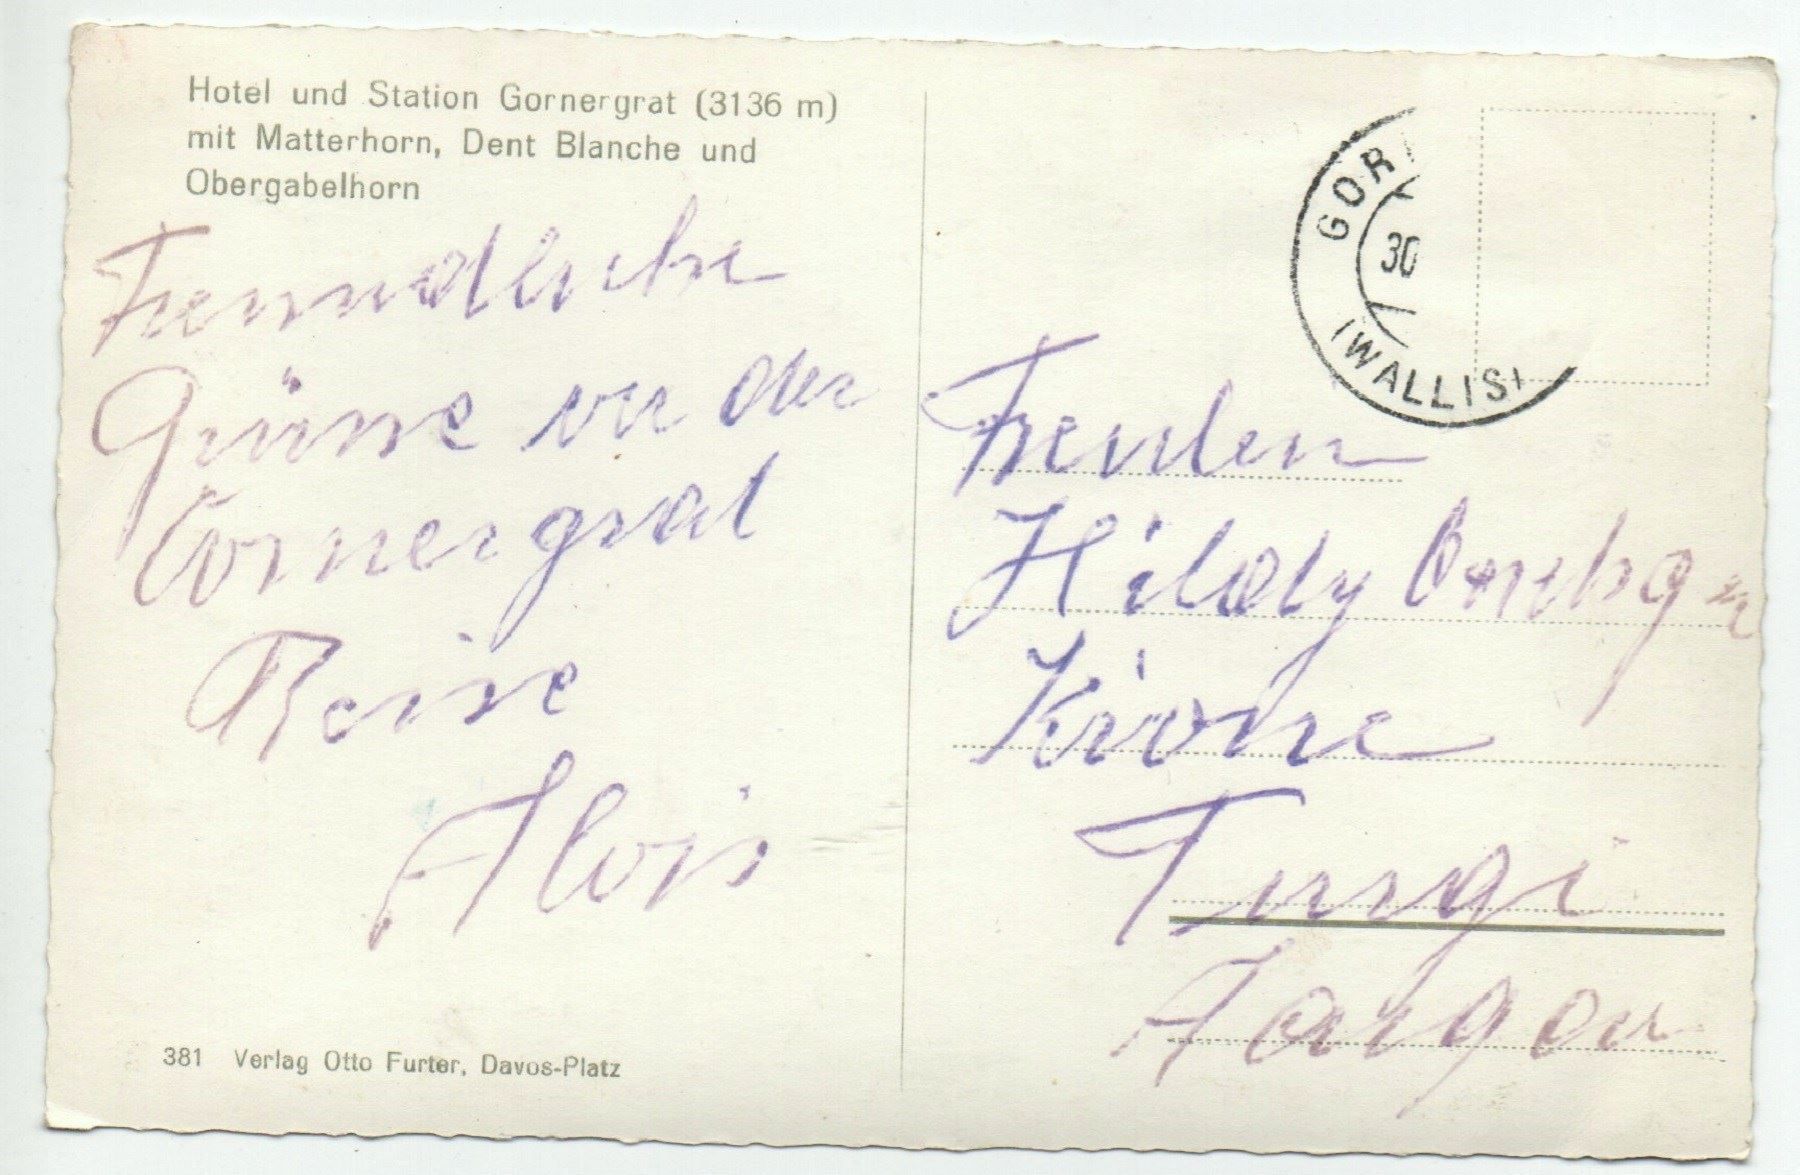 Hotel und Station Gornergrat (3136 m)
mit Matterhorn, Dent Blanche und
Obergabelhorn
Freundliche
Grüsse von der
Gornergrat
Reise
Alois
GOR
30
(WALLIS)
Hildy
Krone
Turgi
Aargau
381 Verlag Otto Furter, Davos-Platz